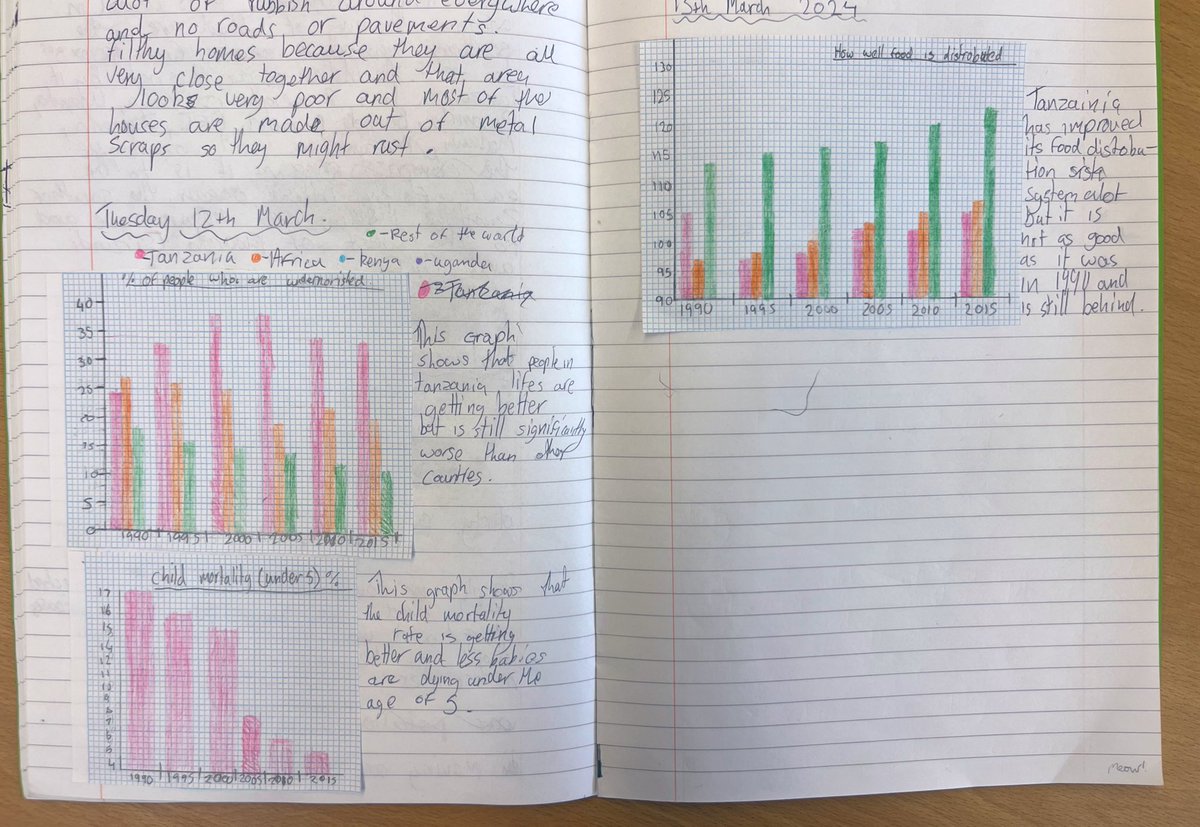 alot of rubbish around everywhere
and no roads or pavements.
filthy homes because they are all
very close together and that area
looks very poor and most of the
houses are made out of metal
scraps so they might rust.
Tuesday 12th March.
-Rest of the world
-Tanzania -Africa -kenya -uganda
% of people who are
Tanzania
40
35
30
25
20
15
10
5
0
1990 1995 2000 2005 2010 2015
This Graph
shows that people in
tanzania lifes are
getting better
but is still significantly
worse than other
counties.
Child mortality (under 5) %
17
16
15
14
13
12
11
10
9
8
7
6
5
4
1990 1995 2000 2005 2010 2015
This graph shows that
the child mortality
rate is getting
better and less babies
are dying under the
age of 5.
15th March 2024
How well food is distrobuted
130
125
120
115
110
105
100
95
90
1990 1995 2000 2005 2010 2015
Tanzainia
has improved
its food distobu-
tion
system alot
But it is
not as good
as it was
in 1990 and
is still behind.
meow!